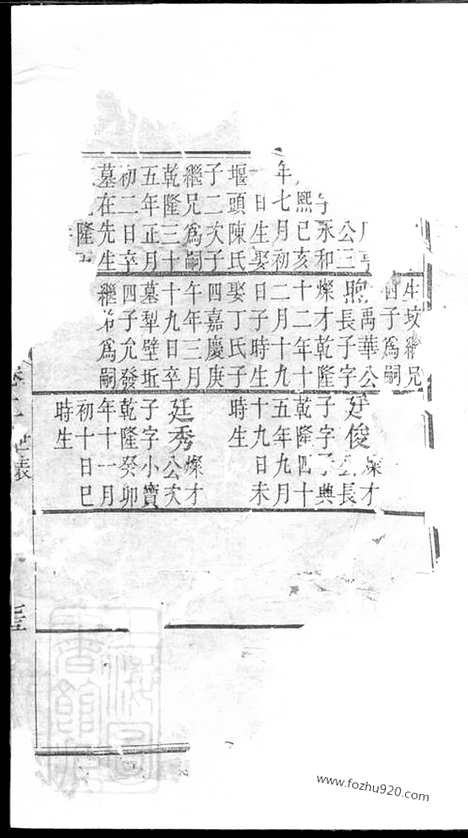 公三
承和
熙己亥
年七月初
日生娶
堰頭陳氏
子二次子
繼兄為嗣
乾隆三十
五年正月
初二日卒
墓在先生
隆
生坟繼兄
四子為嗣
禹華公
長子字
燦才乾隆
十二年十
二月十九
日子時生
娶丁氏子
四嘉慶庚
午年三月
十九日卒
墓犁壁坵
四子允發
繼弟為嗣
廷俊燦才
公長
子字子典
乾隆四十
五年九月
十九日未
時生
廷秀燦才
公次
子字小寶
乾隆癸卯
年十一月
初十日巳
時生
世表
www.fozhu920.com